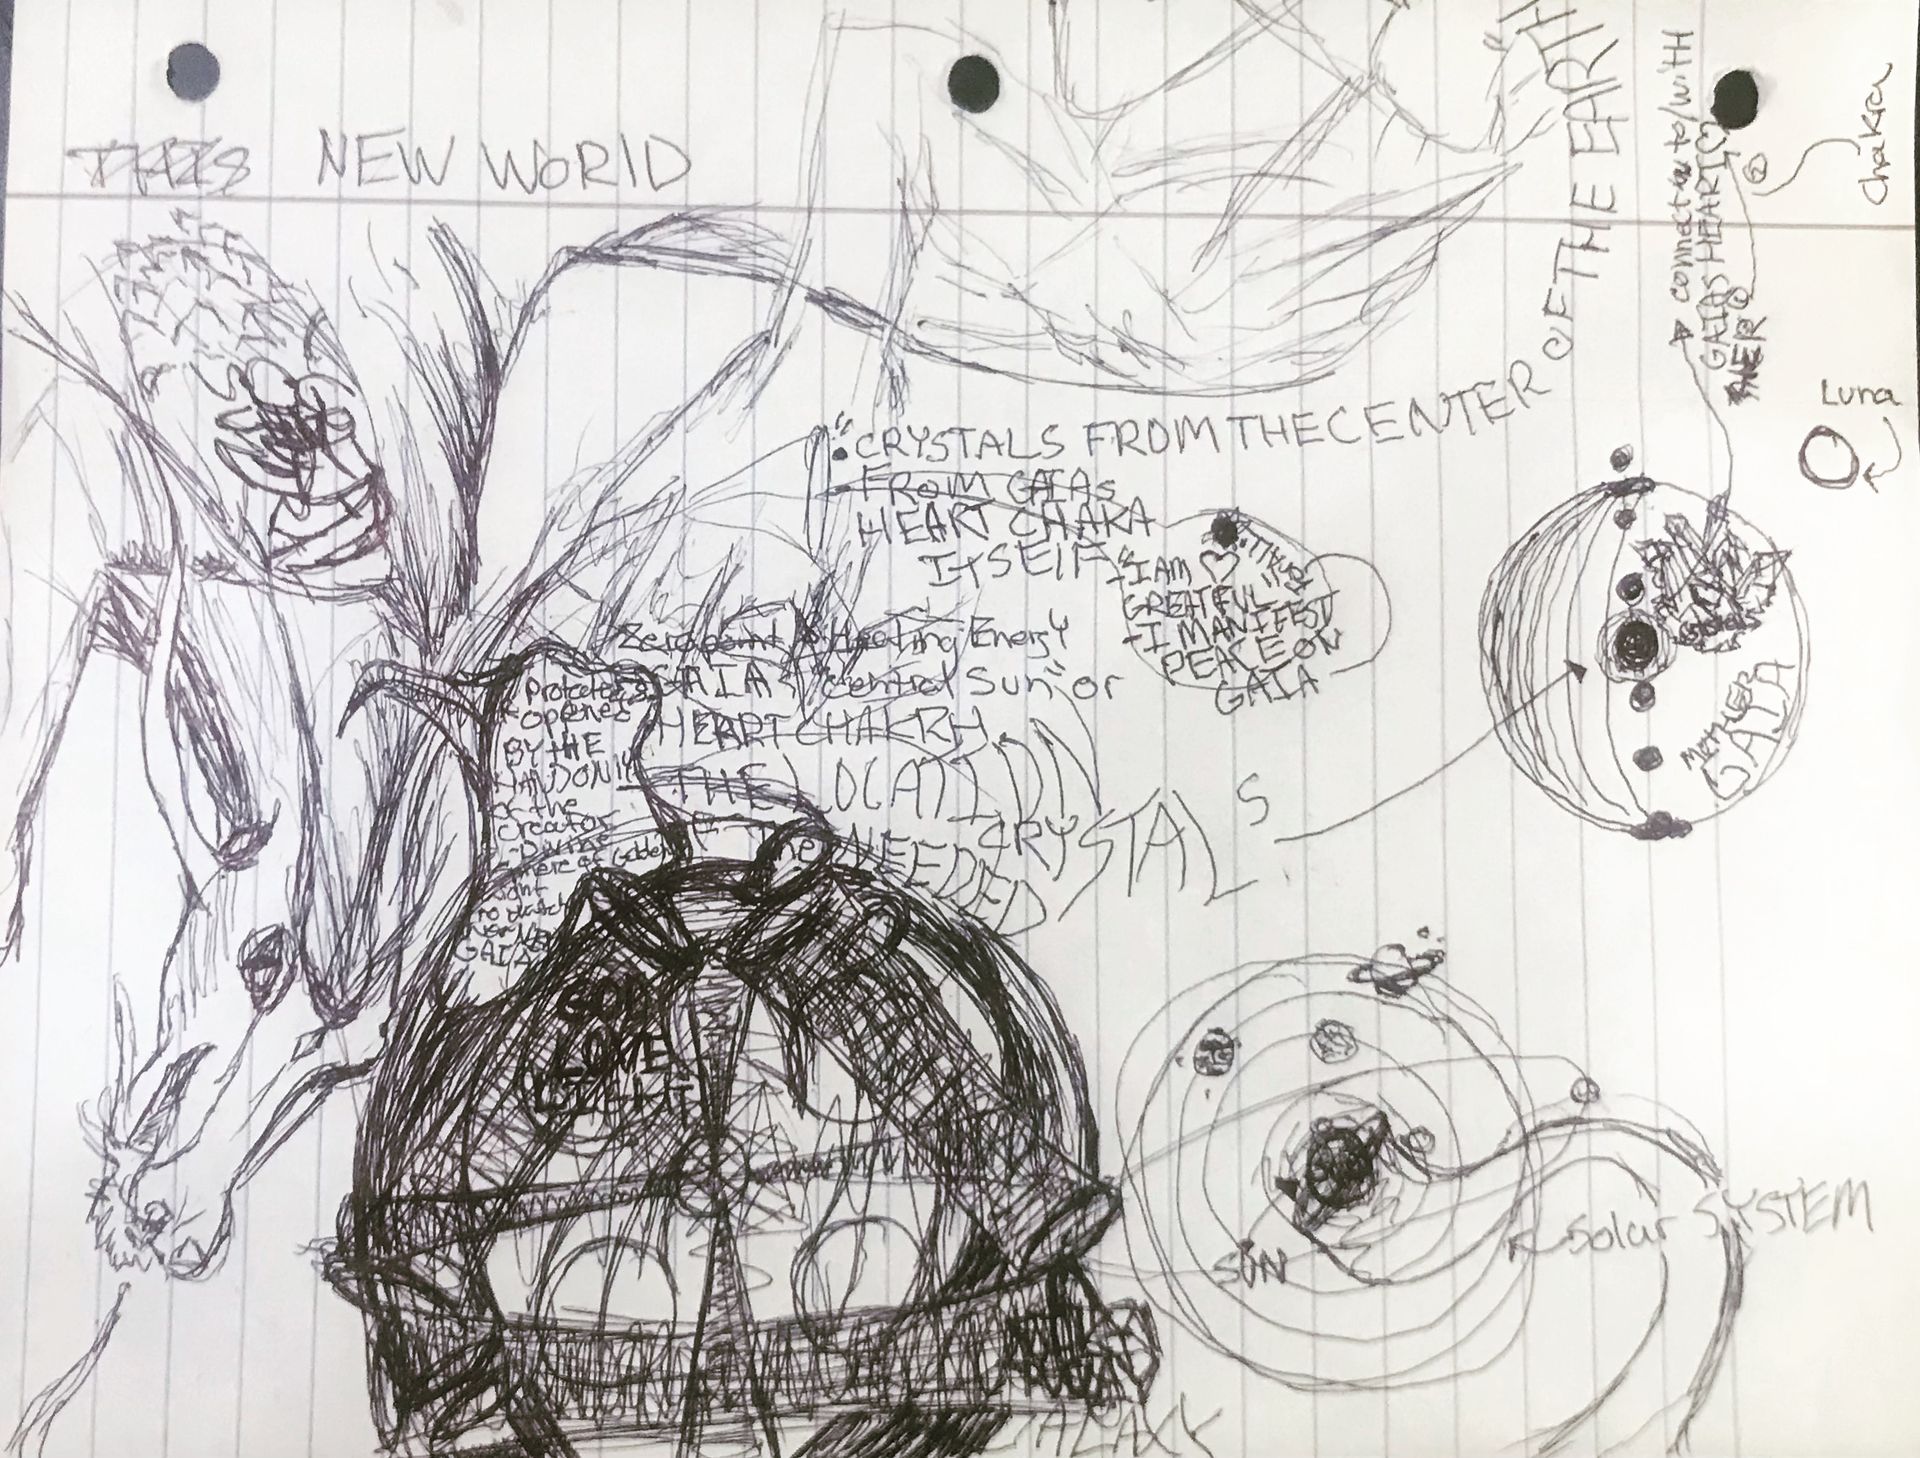 NEW WORlD
"CRYSTALS FROM THE CENTER OF THE EARTH
FROM GAIAs
HEART CHAKA
ITSElF
"I AM ♡
GREATFUL
+I MANIFEST
PEACE ON
GAIA
Zero point Healing Energy
GAIAs "Central Sun" or
HEART CHAKRA
THE LOCATION
NEEDED
CRYSTALS
opened
BY THE
of the
Creator
Divine
GAIA
GOD
LOVE
LIGHT
connect to/with
GAIAS HEART♡
chakra
Luna
MOTHER
GAIA
SUN
Solar SYSTEM
GALAXY